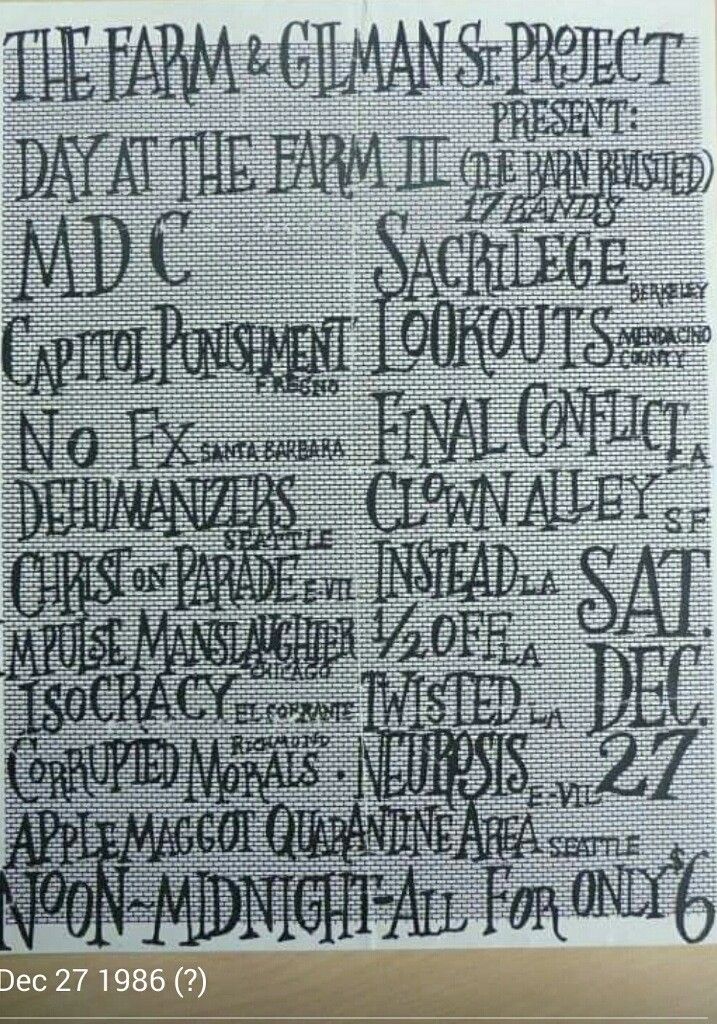 THE FARM & GILMAN ST. PROJECT
PRESENT:
DAY AT THE FARM III (THE BARN REVISITED)
17 BANDS
MDC
SACRILEGE BERKELEY
CAPITOL PUNISHMENT FRESNO
LOOKOUTS MENDACINO COUNTY
NO FX SANTA BARBARA
FINAL CONFLICT LA
DEHUMANIZERS SEATTLE
CLOWN ALLEY SF
CHRIST ON PARADE E-VIL
INSTEAD LA
IMPULSE MANSLAUGHTER CHICAGO
1/2 OFF LA
ISOCRACY EL SOBRANTE
TWISTED LA
CORRUPTED MORALS RICHMOND
NEUROSIS E-VIL
SAT.
DEC.
27
APPLE MAGGOT QUARANTINE AREA SEATTLE
NOON~MIDNIGHT-ALL FOR ONLY $6
Dec 27 1986 (?)